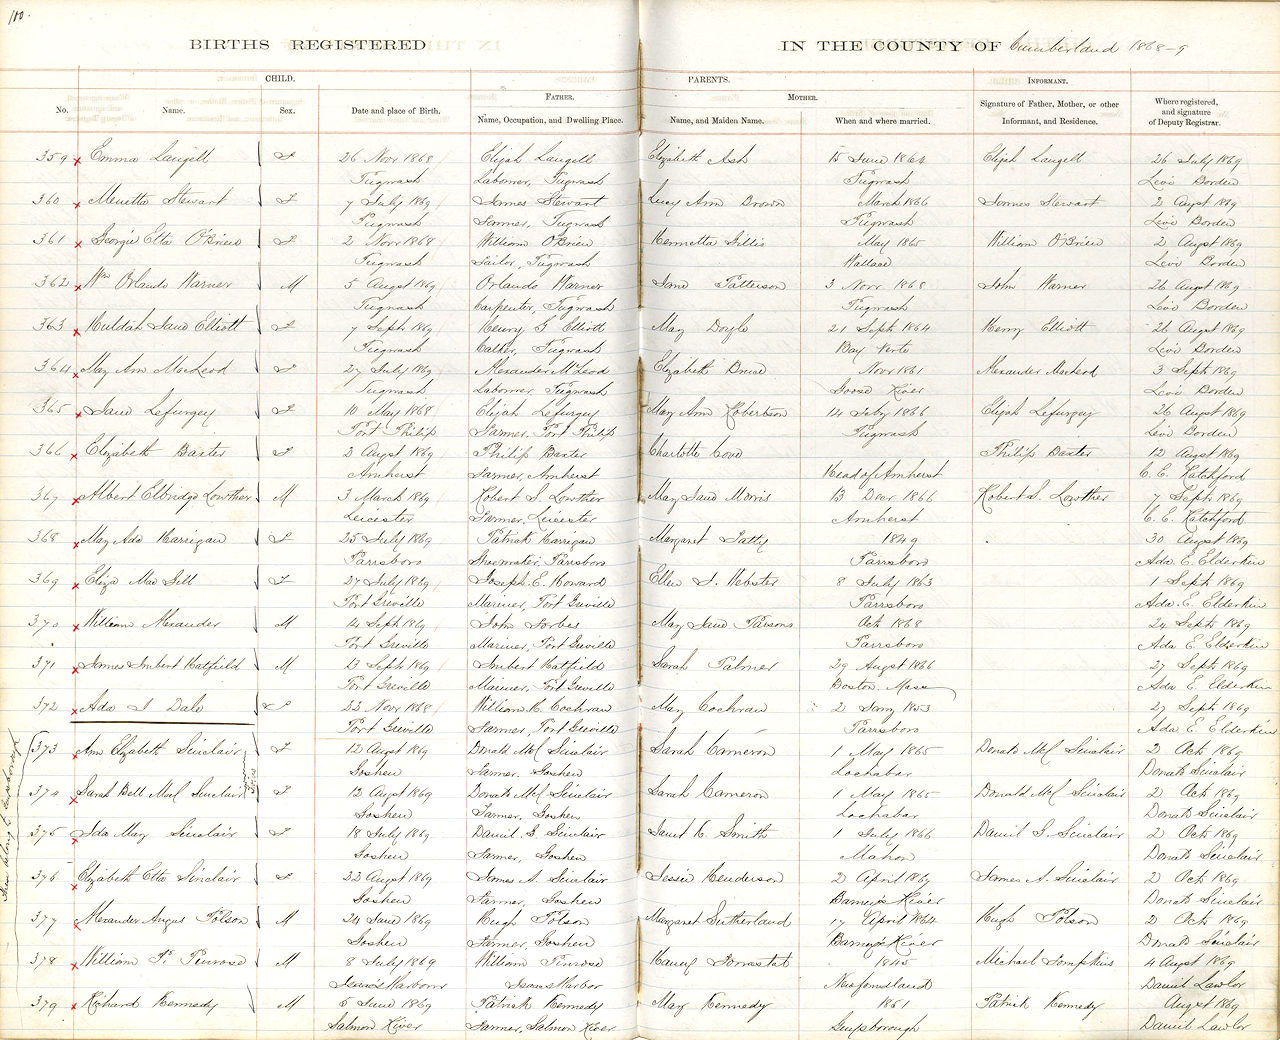 110.
BIRTHS REGISTERED IN THE COUNTY OF Cumberland 1868-9
CHILD. PARENTS. INFORMANT.
No. Name. Sex. Date and place of Birth. FATHER. Name, Occupation, and Dwelling Place. MOTHER. Name, and Maiden Name. When and where married. Signature of Father, Mother, or other Informant, and Residence. Where registered, and signature of Deputy Registrar.
359 x Emma Langell F 26 Novr 1868 Elijah Langell Elizabeth Ash 15 June 186 Elijah Langell 26 July 1869
Pugwash Laborer, Pugwash Pugwash Levi Borden
360 x Stewart F 7 July 1869 James Stewart Lucy Ann Brown March 1866 James Stewart 2 Augst 1869
Pugwash Farmer, Pugwash Pugwash Levi Borden
361 x Georgie Etta O'Brien F 2 Novr 1868 William O'Brien Henrietta Gillis May 1865 William O'Brien 2 Augst 1869
Pugwash Sailor, Pugwash Wallace Levi Borden
362 x Wm Orlando Warner M 5 Augst 1869 Orlando Warner Jane Patterson 3 Novr 1868 John Warner 26 Augst 1869
Pugwash Carpenter, Pugwash Pugwash Levi Borden
363 x Huldah Jane Elliott F 7 Septr 1869 Henry G Elliott May Doyle 21 Septr 1864 Henry Elliott 26 Augst 1869
Pugwash Calker, Pugwash Bay Verte Levi Borden
364 x May Ann MacLeod F 27 July 1869 Alexander McLeod Elizabeth Bruce Novr 1861 Alexander MacLeod 3 Septr 1869
Pugwash Laborer, Pugwash Goose River Levi Borden
365 x Jane Lefurgey F 10 May 1868 Elijah Lefurgey Mary Ann Robertson 14 July 1866 Elijah Lefurgey 26 Augst 1869
Port Philip Farmer, Port Philip Pugwash Levi Borden
366 x Elizabeth Baxter F 2 Augst 1869 Philip Baxter Charlotte Cove Philip Baxter 12 Augst 1869
Amherst Farmer, Amherst Head of Amherst C. E. Ratchford
367 x Albert Elbridge Lowther M 3 March 1869 Robert S. Lowther May Jane Morris 13 Decr 1866 Robert S. Lowther 7 Septr 1869
Leicester Farmer, Leicester Amherst C. E. Ratchford
368 x May Ada Harrigan F 25 July 1869 Patrick Harrigan Margaret 1849 30 Augst 1869
Parrsboro Shoemaker, Parrsboro Parrsboro Ada E. Elderkin
369 x Eliza Mac Gill F 27 July 1869 Joseph E. Howard Ellen J. Webster 8 July 1863 1 Septr 1869
Port Greville Mariner, Port Greville Parrsboro Ada E. Elderkin
370 x William Alexander M 14 Septr 1869 John Forbes May Jane Parsons Oct 1868 24 Septr 1869
Port Greville Mariner, Port Greville Parrsboro Ada E Elderkin
371 x James Imbert Hatfield M 23 Septr 1869 Imbert Hatfield Sarah Palmer 29 Augst 1866 27 Septr 1869
Port Greville Mariner, Port Greville Boston, Mass Ada E. Elderkin
372 x Ada I Dale F 22 Novr 1868 William H. Cochran May Cochran 2 Jany 1853 27 Septr 1869
Port Greville Farmer, Port Greville Parrsboro Ada E Elderkin
373 x Ann Elizabeth Sinclair F 12 Augst 1869 Donald McL Sinclair Sarah Cameron 1 May 1865 Donald McL Sinclair 2 Oct 1869
Goshen Farmer, Goshen Lochabar Donald Sinclair
374 x Sarah Bell McL Sinclair F 12 Augst 1869 Donald McL Sinclair Sarah Cameron 1 May 1865 Donald McL Sinclair 2 Oct 1869
Goshen Farmer, Goshen Lochabar Donald Sinclair
375 x Ida May Sinclair F 18 July 1869 Daniel S. Sinclair Janet K. Smith 1 July 1866 Daniel S. Sinclair 2 Oct 1869
Goshen Farmer, Goshen Mahon Donald Sinclair
376 x Elizabeth Etta Sinclair F 22 Augst 1869 James A. Sinclair Jessie Henderson 2 April 1869 James A. Sinclair 2 Oct 1869
Goshen Farmer, Goshen Barneys River Donald Sinclair
377 x Alexander Angus Polson M 24 June 1869 Hugh Polson Margaret Sutherland 7 April 1864 Hugh Polson 2 Oct 1869
Goshen Farmer, Goshen Barneys River Donald Sinclair
378 x William P. Penrose M 8 July 1869 William Penrose Nancy 1865 Michael Tompkins 4 Augst 1869
Isaacs Harbour Isaacs Harbor Newfoundland Daniel Lawlor
379 x Richard Kennedy M 5 June 1869 Patrick Kennedy May Kennedy 1861 Patrick Kennedy Augst 1869
Salmon River Farmer, Salmon River Guysborough Daniel Lawlor